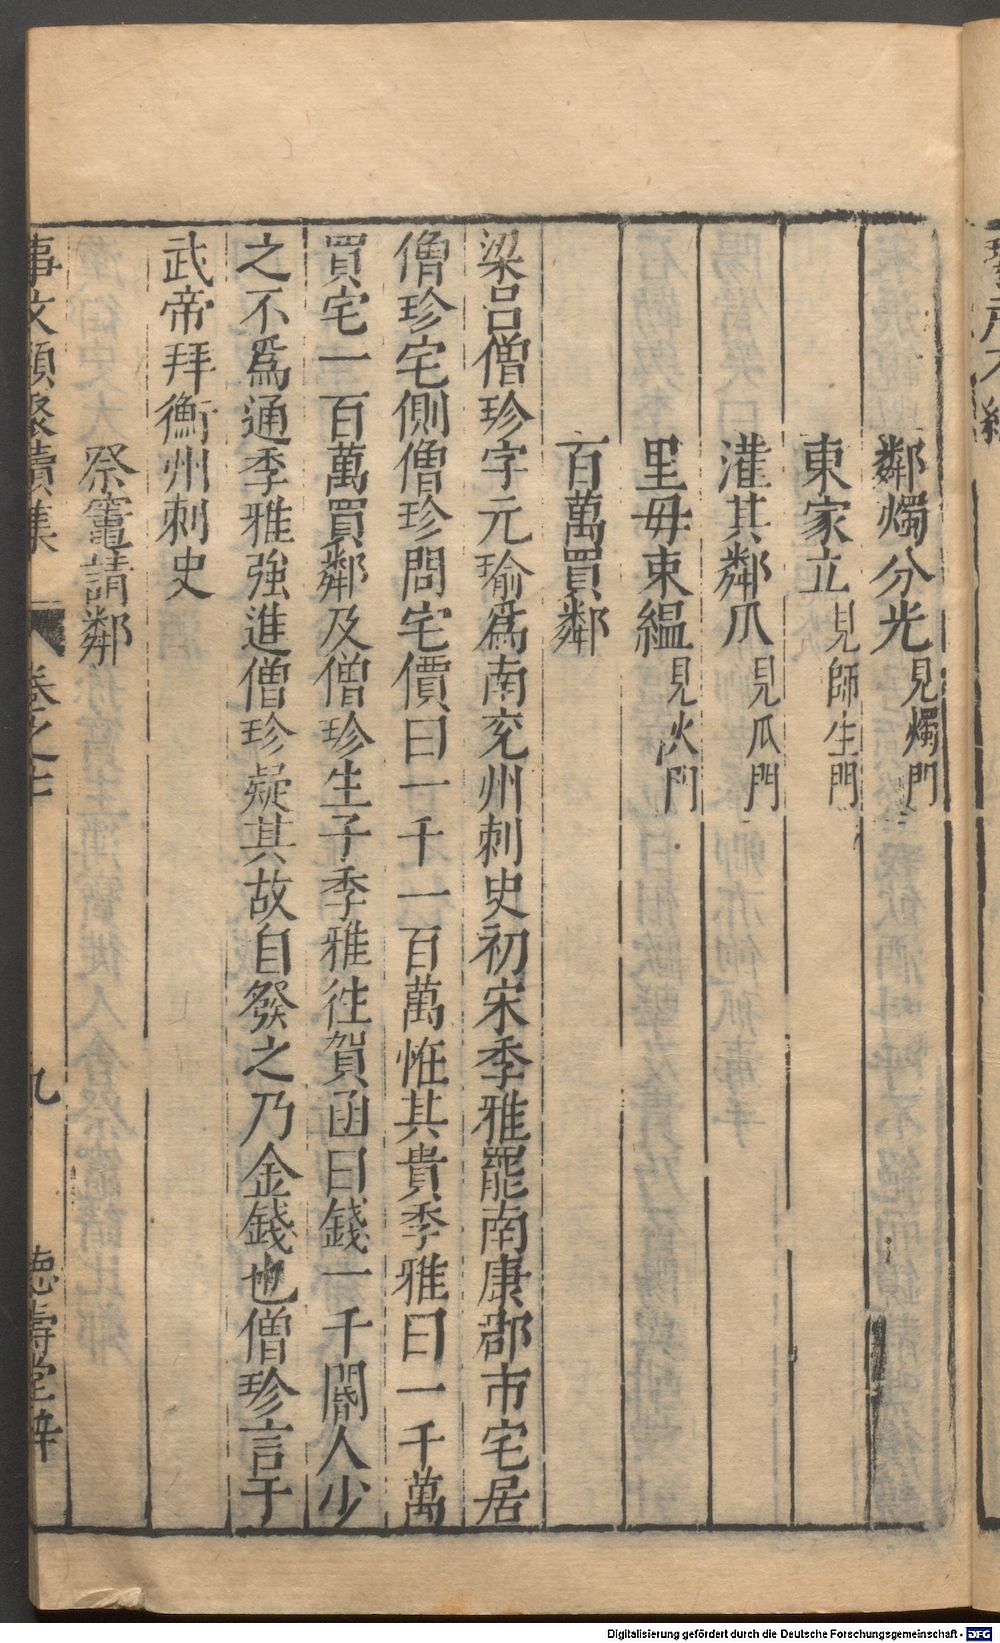 鄰燭分光見燭門
東家立見師生門
灌其鄰瓜見瓜門
里毋束緼見火門
百萬買鄰
梁呂僧珍字元瑜爲南兖州刺史初宋季雅罷南康郡市宅居
僧珍宅側僧珍問宅價曰一千一百萬恠其貴季雅曰一千萬
買宅一百萬買鄰及僧珍生子季雅徃賀函曰錢一千閽人少
之不爲通季雅強進僧珍疑其故自發之乃金錢也僧珍言于
武帝拜衡州刺史
祭竈請鄰
事文類聚續集 卷之七 九 德壽堂梓
Digitalisierung gefördert durch die Deutsche Forschungsgemeinschaft - DFG